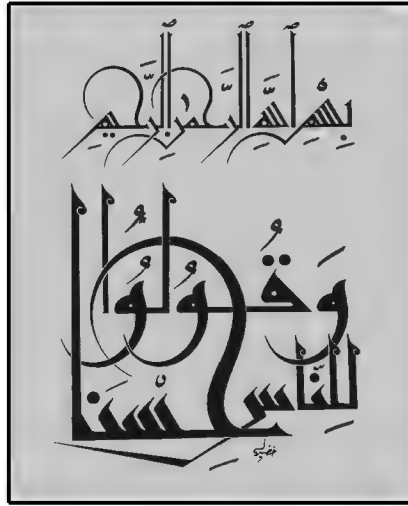 بِسْمِ اللَّهِ الرَّحْمَٰنِ الرَّحِيمِ
وَقُولُوا
لِلنَّاسِ حُسْنًا